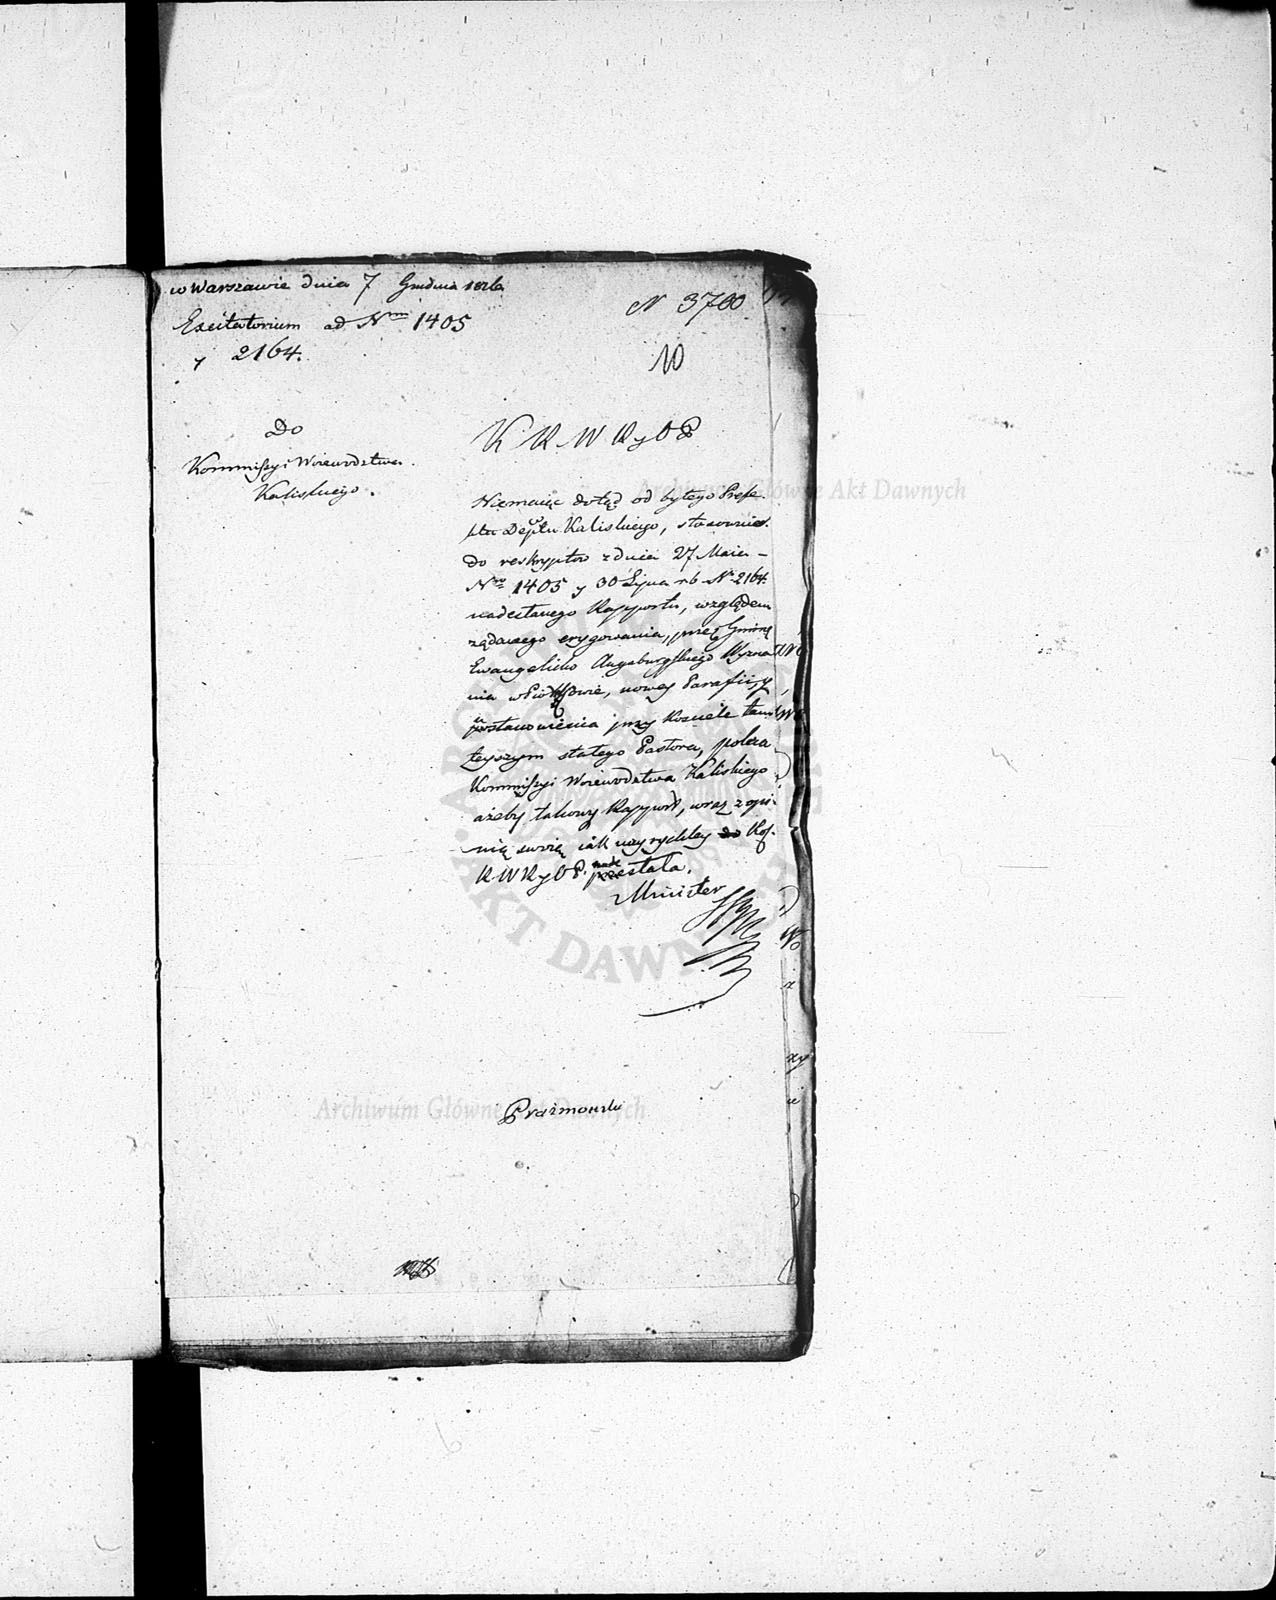 w Warszawie dnia 7 Grudnia 1816
Excitatorium ad Nrm 1405
y 2164.
N 3700
10
Do
Kommissyi Woiewodztwa
Kaliskiego.
K R W R y O P
Niemaiąc dotąd od byłego Prefe-
kta Deptu Kaliskiego, stosownie
do reskryptow z dnia 27 Maia
Nro 1405 y 30 Lipca r b Nr 2164.
nadesłanego Rapportu, względem
żądanego erygowania, przez Gminę
Ewangelicko Augsburgskiego Wyzna
nia w Piotrkowie, nowey Parafii, y
postanowienia przy Kościele tam
teyszym stałego Pastora, poleca
Kommissyi Woiewodztwa Kaliskiego
ażeby takowy Rapport, wraz z opi-
nią swoią iak nayrychley do Kof.
R W R y O P. nadesłała.
Minister
Prażmowski
Archiwum Główne Akt Dawnych
Archiwum Główne Akt Dawnych